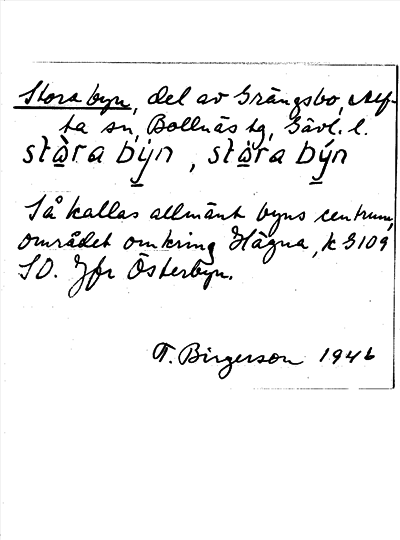 Stora byn, del av Grängsbo, Alf-
ta sn, Bollnäs tg, Gävl. l.
stàra býn, stàra býn
Så kallas allmänt byns centrum,
området omkring Hägna, k 3109
SO. Jfr Österbyn.
T. Birgerson 1946